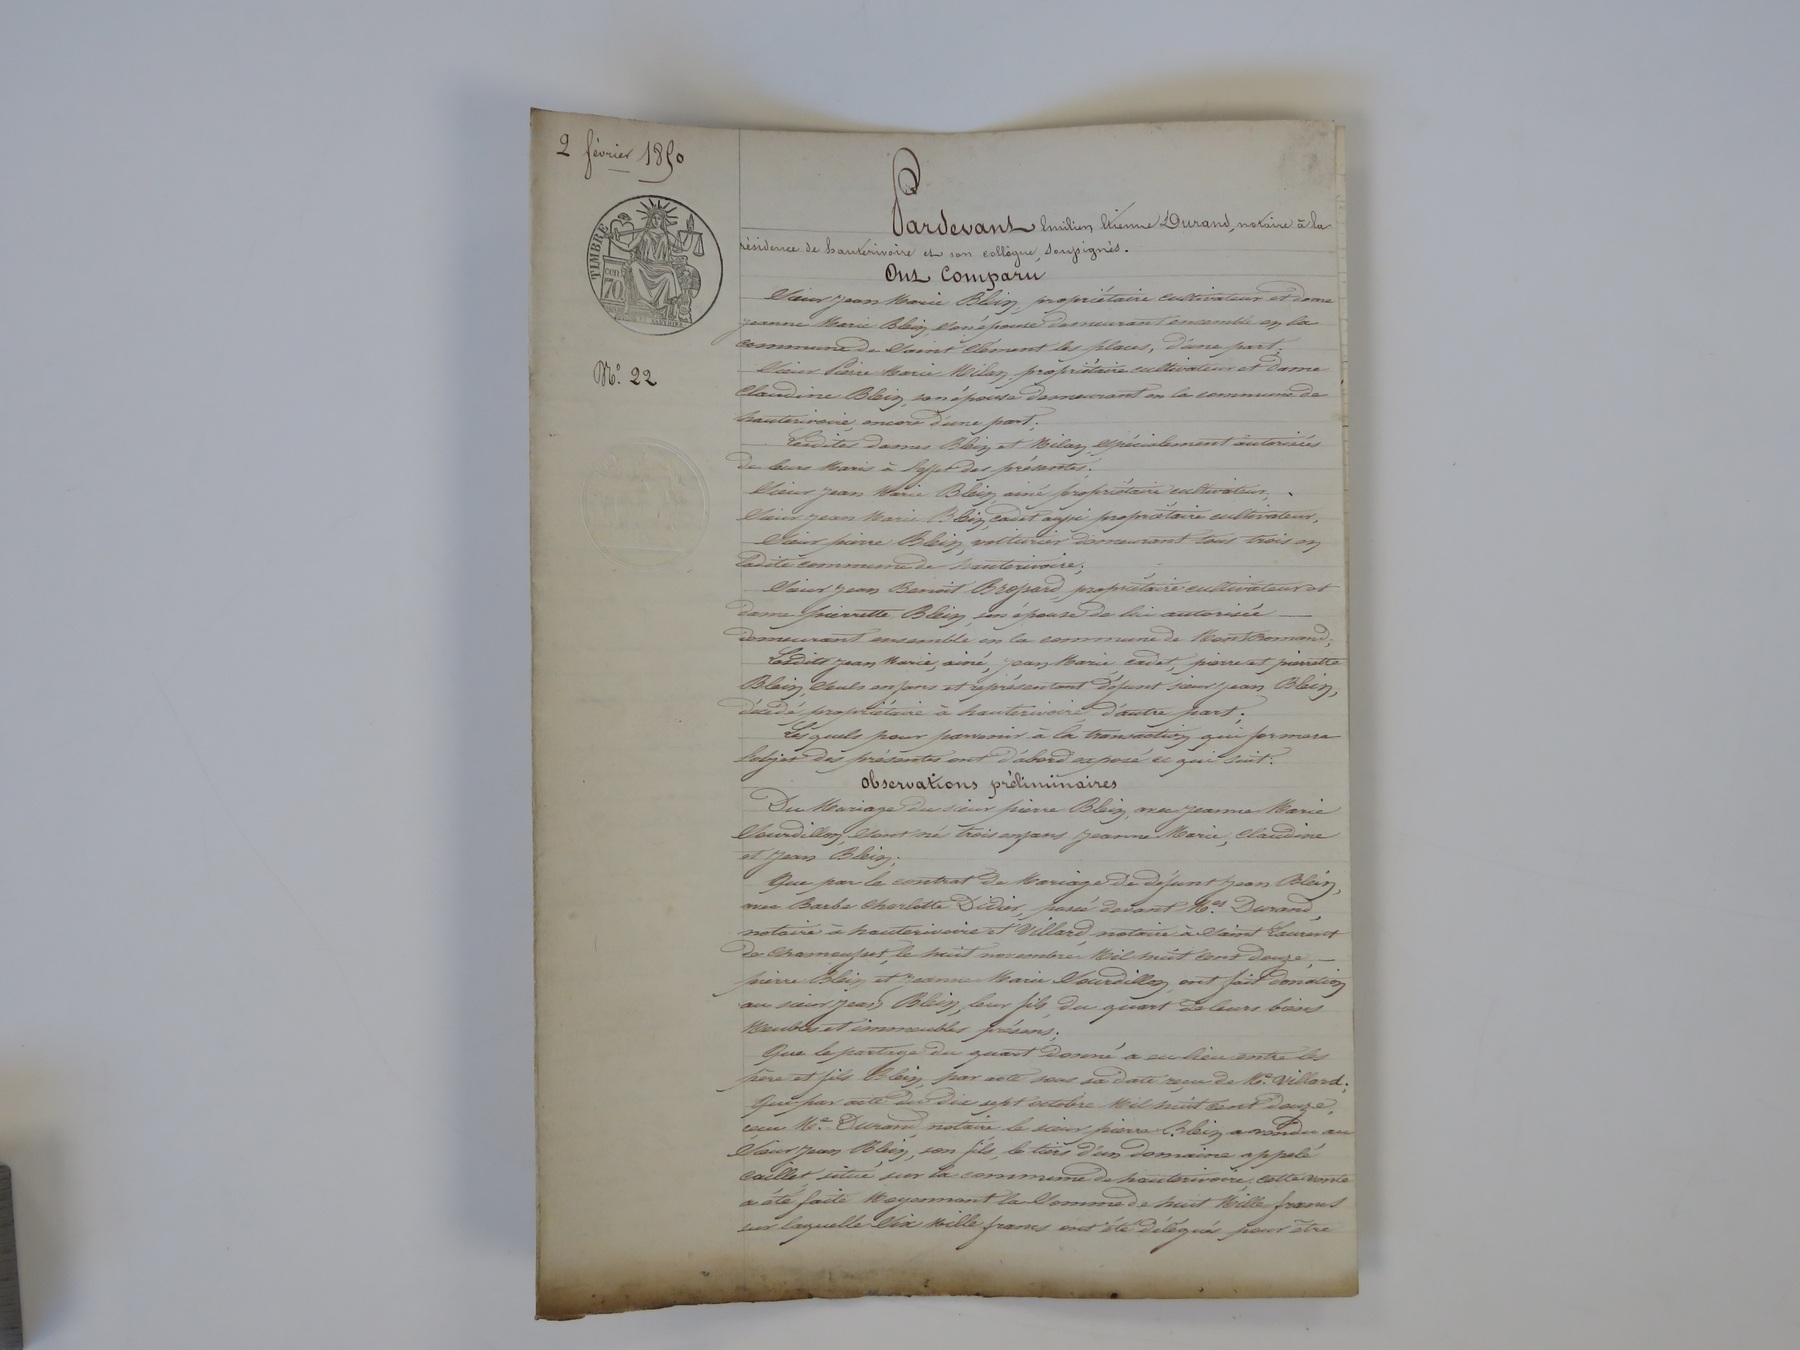 2 février 1850
TIMBRE
cen
70
N.° 22
Pardevant Emilien Etienne Durand, notaire à la
résidence de hauterivoire et son collègue, soussignés.
Ont Comparu
Sieur Jean Marie Blein, propriétaire cultivateur et dame
Jeanne Marie Blein, son épouse demeurant ensemble en la
commune de Saint Clément les places, d'une part;
Sieur Pierre Marie Milan, propriétaire cultivateur et dame
Claudine Blein, son épouse demeurant en la commune de
hauterivoire, encore d'une part;
Lesdites dames Blein et Milan, spécialement autorisées
de leurs Maris à l'effet des présentes.
Sieur Jean Marie Blein, ainé propriétaire cultivateur,
Sieur Jean Marie Blein, cadet aussi propriétaire cultivateur,
Sieur pierre Blein, voiturier demeurant tous trois en
ladite commune de hauterivoire;
Sieur Jean Benoit Brossard, propriétaire cultivateur et
dame pierrette Blein, son épouse de lui autorisée
demeurant ensemble en la commune de Montromand;
Lesdits Jean Marie, ainé, Jean Marie, cadet, pierre et pierrette
Blein, seuls enfans et représentant défunt sieur Jean Blein,
décédé propriétaire à hauterivoire, d'autre part;
Lesquels pour parvenir à la transaction qui formera
l'objet des présentes ont d'abord exposé ce qui suit:
Observations préliminaires
Du Mariage du sieur pierre Blein, avec Jeanne Marie
Sourdillon, sont né trois enfans Jeanne Marie, Claudine
et Jean Blein;
Que par le contrat de Mariage de défunt Jean Blein,
avec Barbe Charlotte Didier, passé devant M.es Durand,
notaire à hauterivoire et Villard, notaire à Saint Laurent
de Chamousset, le huit novembre Mil huit cent douze,
pierre Blein et Jeanne Marie Sourdillon, ont fait donation
au sieur Jean Blein, leur fils, du quart de leurs biens
Meubles et immeubles présens;
Que le partage du quart donné a eu lieu entre les
père et fils Blein, par acte sous sa date reçu de M.e Villard;
Que par acte du dix sept octobre Mil huit cent douze,
reçu M.e Durand, notaire le sieur pierre Blein a vendu au
Sieur Jean Blein, son fils, le tiers d'un domaine appelé
Caillet situé sur la commune de hauterivoire, cette vente
a été faite Moyennant la Somme de huit Mille francs
sur laquelle Six Mille francs ont été délégués pour être